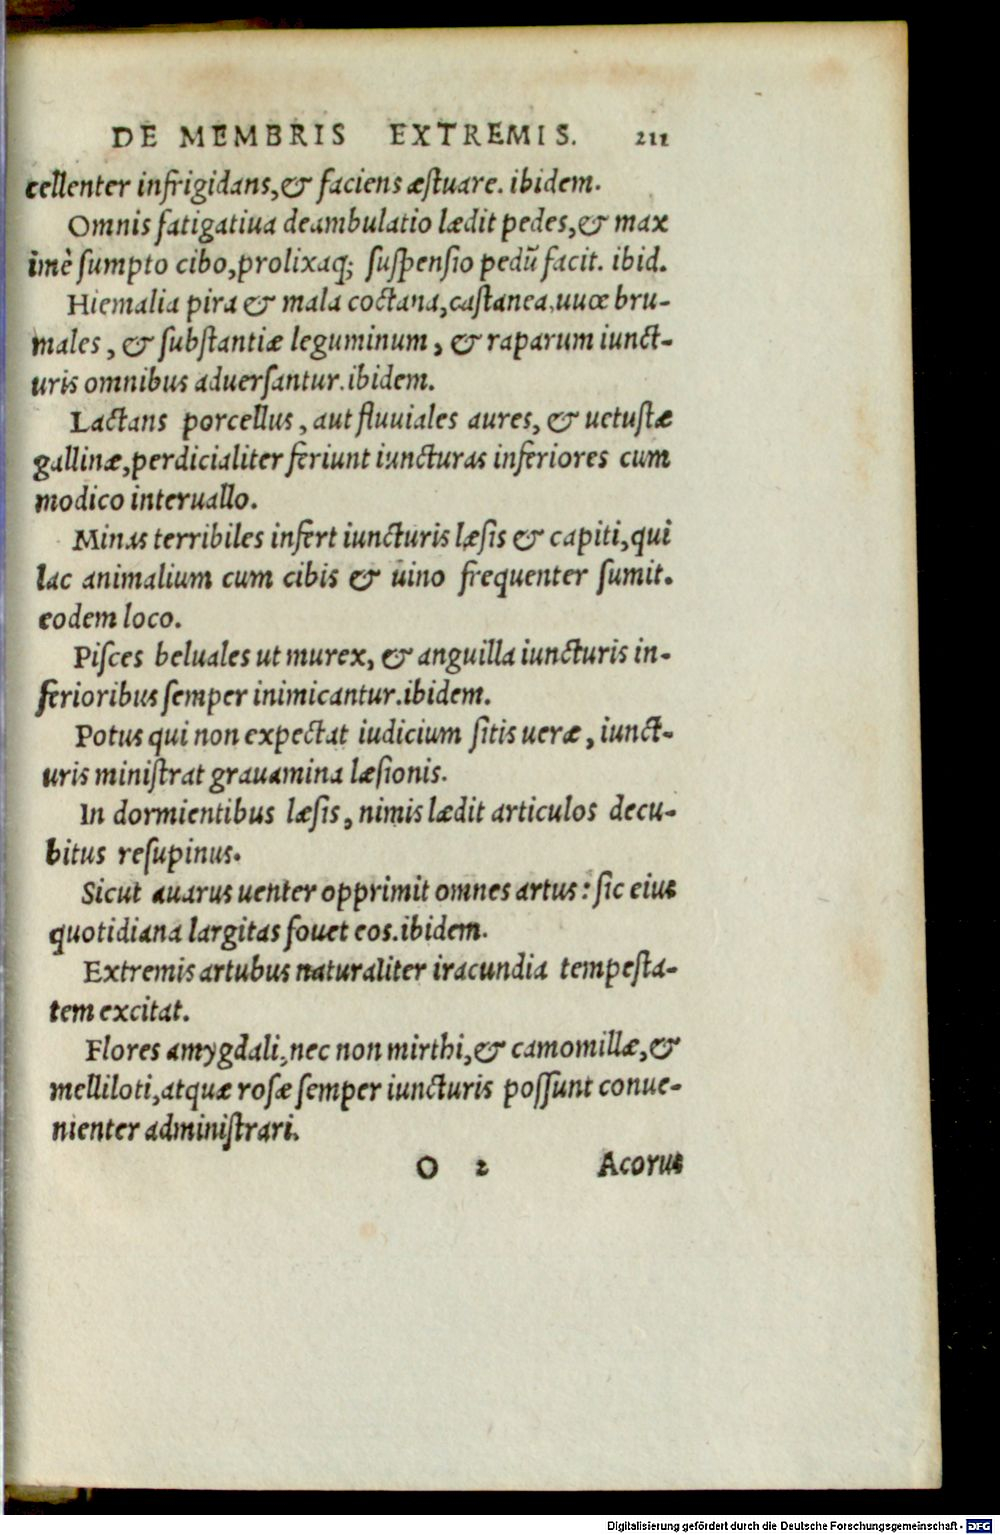 DE MEMBRIS EXTREMIS. 211
cellenter infrigidans, & faciens æstuare. ibidem.
Omnis fatigatiua deambulatio lædit pedes, & max
imè sumpto cibo, prolixaq; suspensio pedũ facit. ibid.
Hiemalia pira & mala coctana, castanea, uuæ bru-
males, & substantiæ leguminum, & raparum iunct-
uris omnibus aduersantur. ibidem.
Lactans porcellus, aut fluuiales aures, & uetustæ
gallinæ, perdicialiter feriunt iuncturas inferiores cum
modico interuallo.
Minas terribiles infert iuncturis læsis & capiti, qui
lac animalium cum cibis & uino frequenter sumit.
eodem loco.
Pisces beluales ut murex, & anguilla iuncturis in-
ferioribus semper inimicantur. ibidem.
Potus qui non expectat iudicium sitis ueræ, iunct-
uris ministrat grauamina læsionis.
In dormientibus læsis, nimis lædit articulos decu-
bitus resupinus.
Sicut auarus uenter opprimit omnes artus: sic eius
quotidiana largitas fouet eos. ibidem.
Extremis artubus naturaliter iracundia tempesta-
tem excitat.
Flores amygdali, nec non mirthi, & camomillæ, &
melliloti, atquæ rosæ semper iuncturis possunt conue-
nienter administrari.
O 2 Acorus
Digitalisierung gefördert durch die Deutsche Forschungsgemeinschaft - DFG